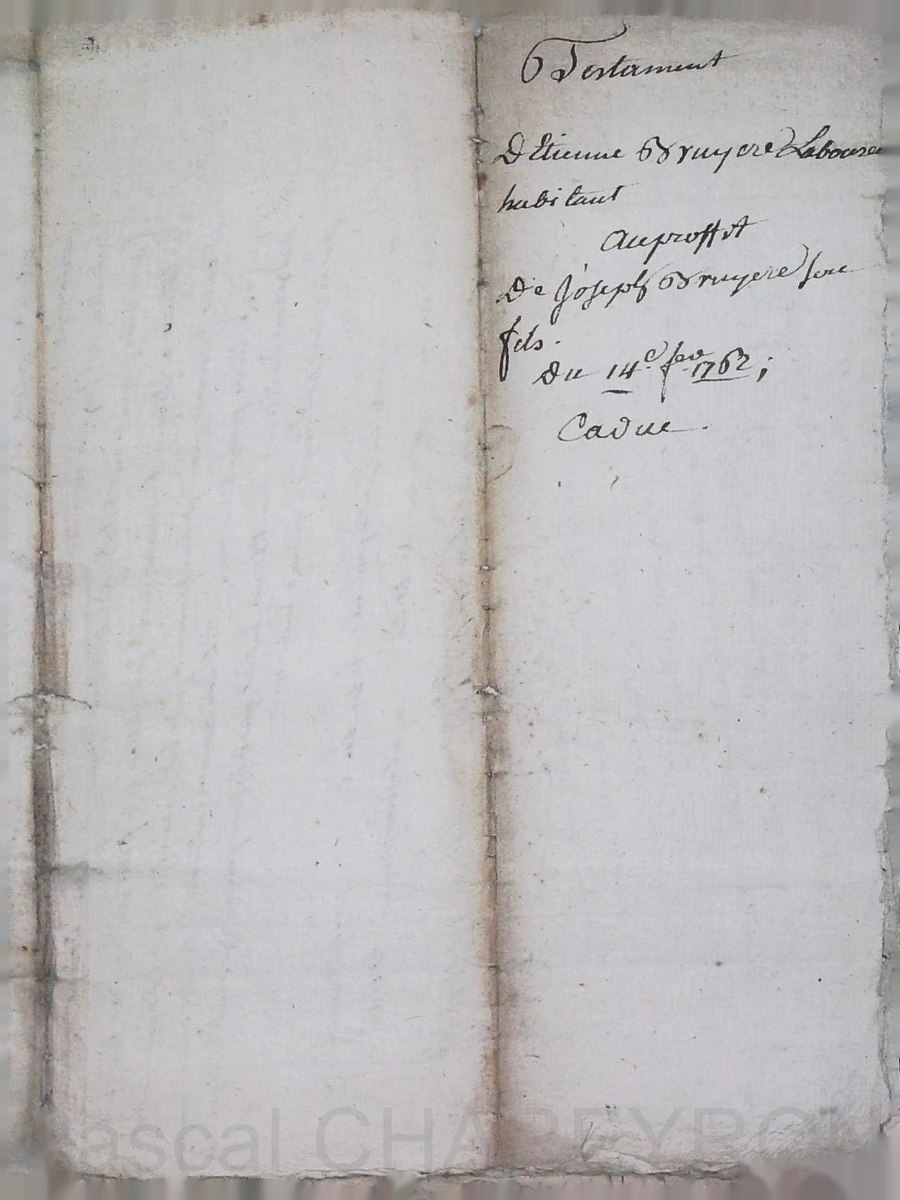 Testament
D Etienne Bruyere Laboureu
habitant
Au proffit
De Joseph Bruyere son
fils.
du 14e fev 1762;
Caduc.
Pascal CHAPEYRON